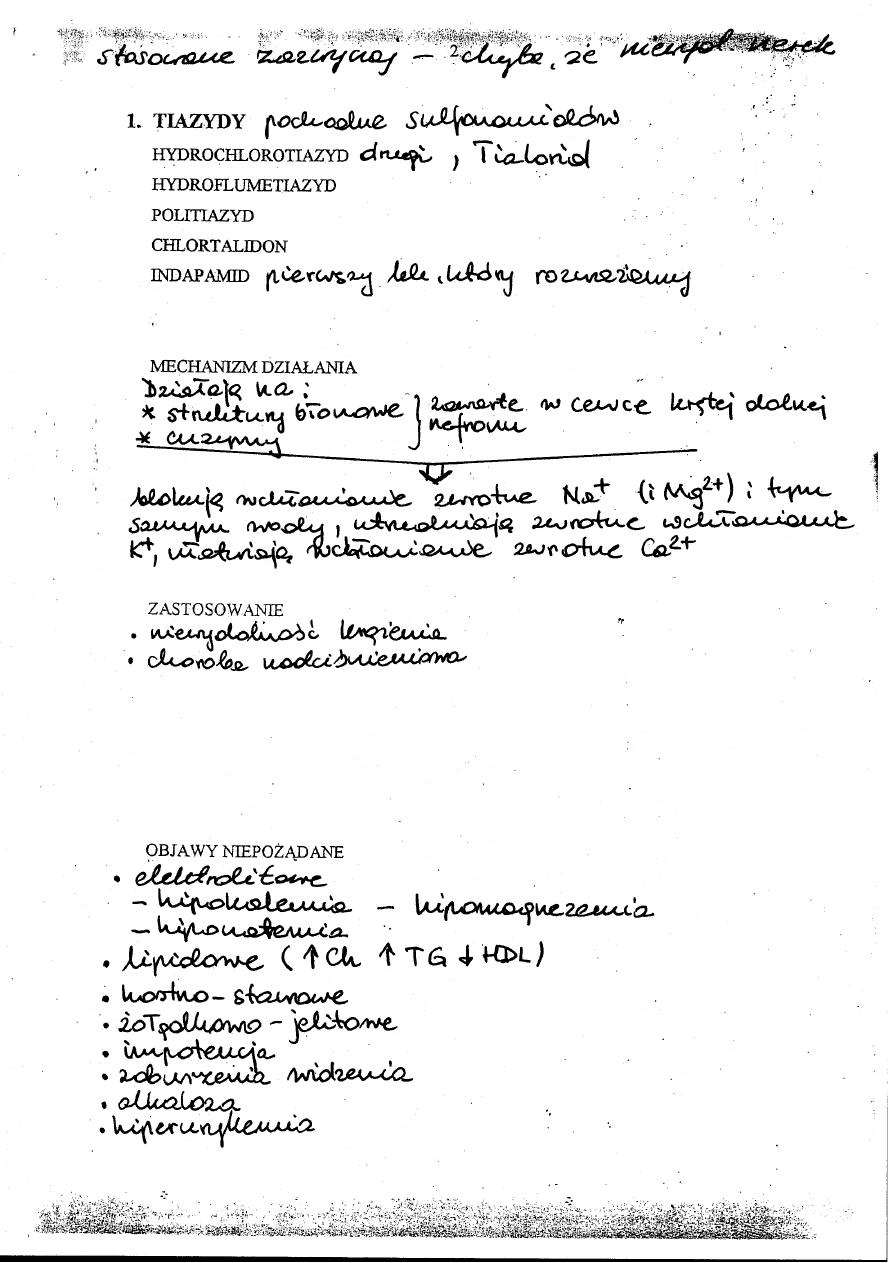 stosowane zazwyczaj – chyba, że niewyd. nerek
1. TIAZYDY pochodne sulfonamidów
HYDROCHLOROTIAZYD drugi, Tialorid
HYDROFLUMETIAZYD
POLITIAZYD
CHLORTALIDON
INDAPAMID pierwszy lek, który rozważamy
MECHANIZM DZIAŁANIA
Działają na:
* struktury błonowe } zawarte w cewce krętej dalnej
* enzymy nefronu
blokują wchłanianie zwrotne Na⁺ (i Mg²⁺) i tym
samym wody, utrudniają zwrotne wchłanianie
K⁺, ułatwiają wchłanianie zwrotne Ca²⁺
ZASTOSOWANIE
• niewydolność krążenia
• choroba nadciśnieniowa
OBJAWY NIEPOŻĄDANE
• elektrolitowe
– hipokalemia – hipomagnezemia
– hiponatemia
• lipidowe (↑Ch ↑TG ↓HDL)
• kostno-stawowe
• żołądkowo-jelitowe
• impotencja
• zaburzenia widzenia
• alkaloza
• hiperurykemia